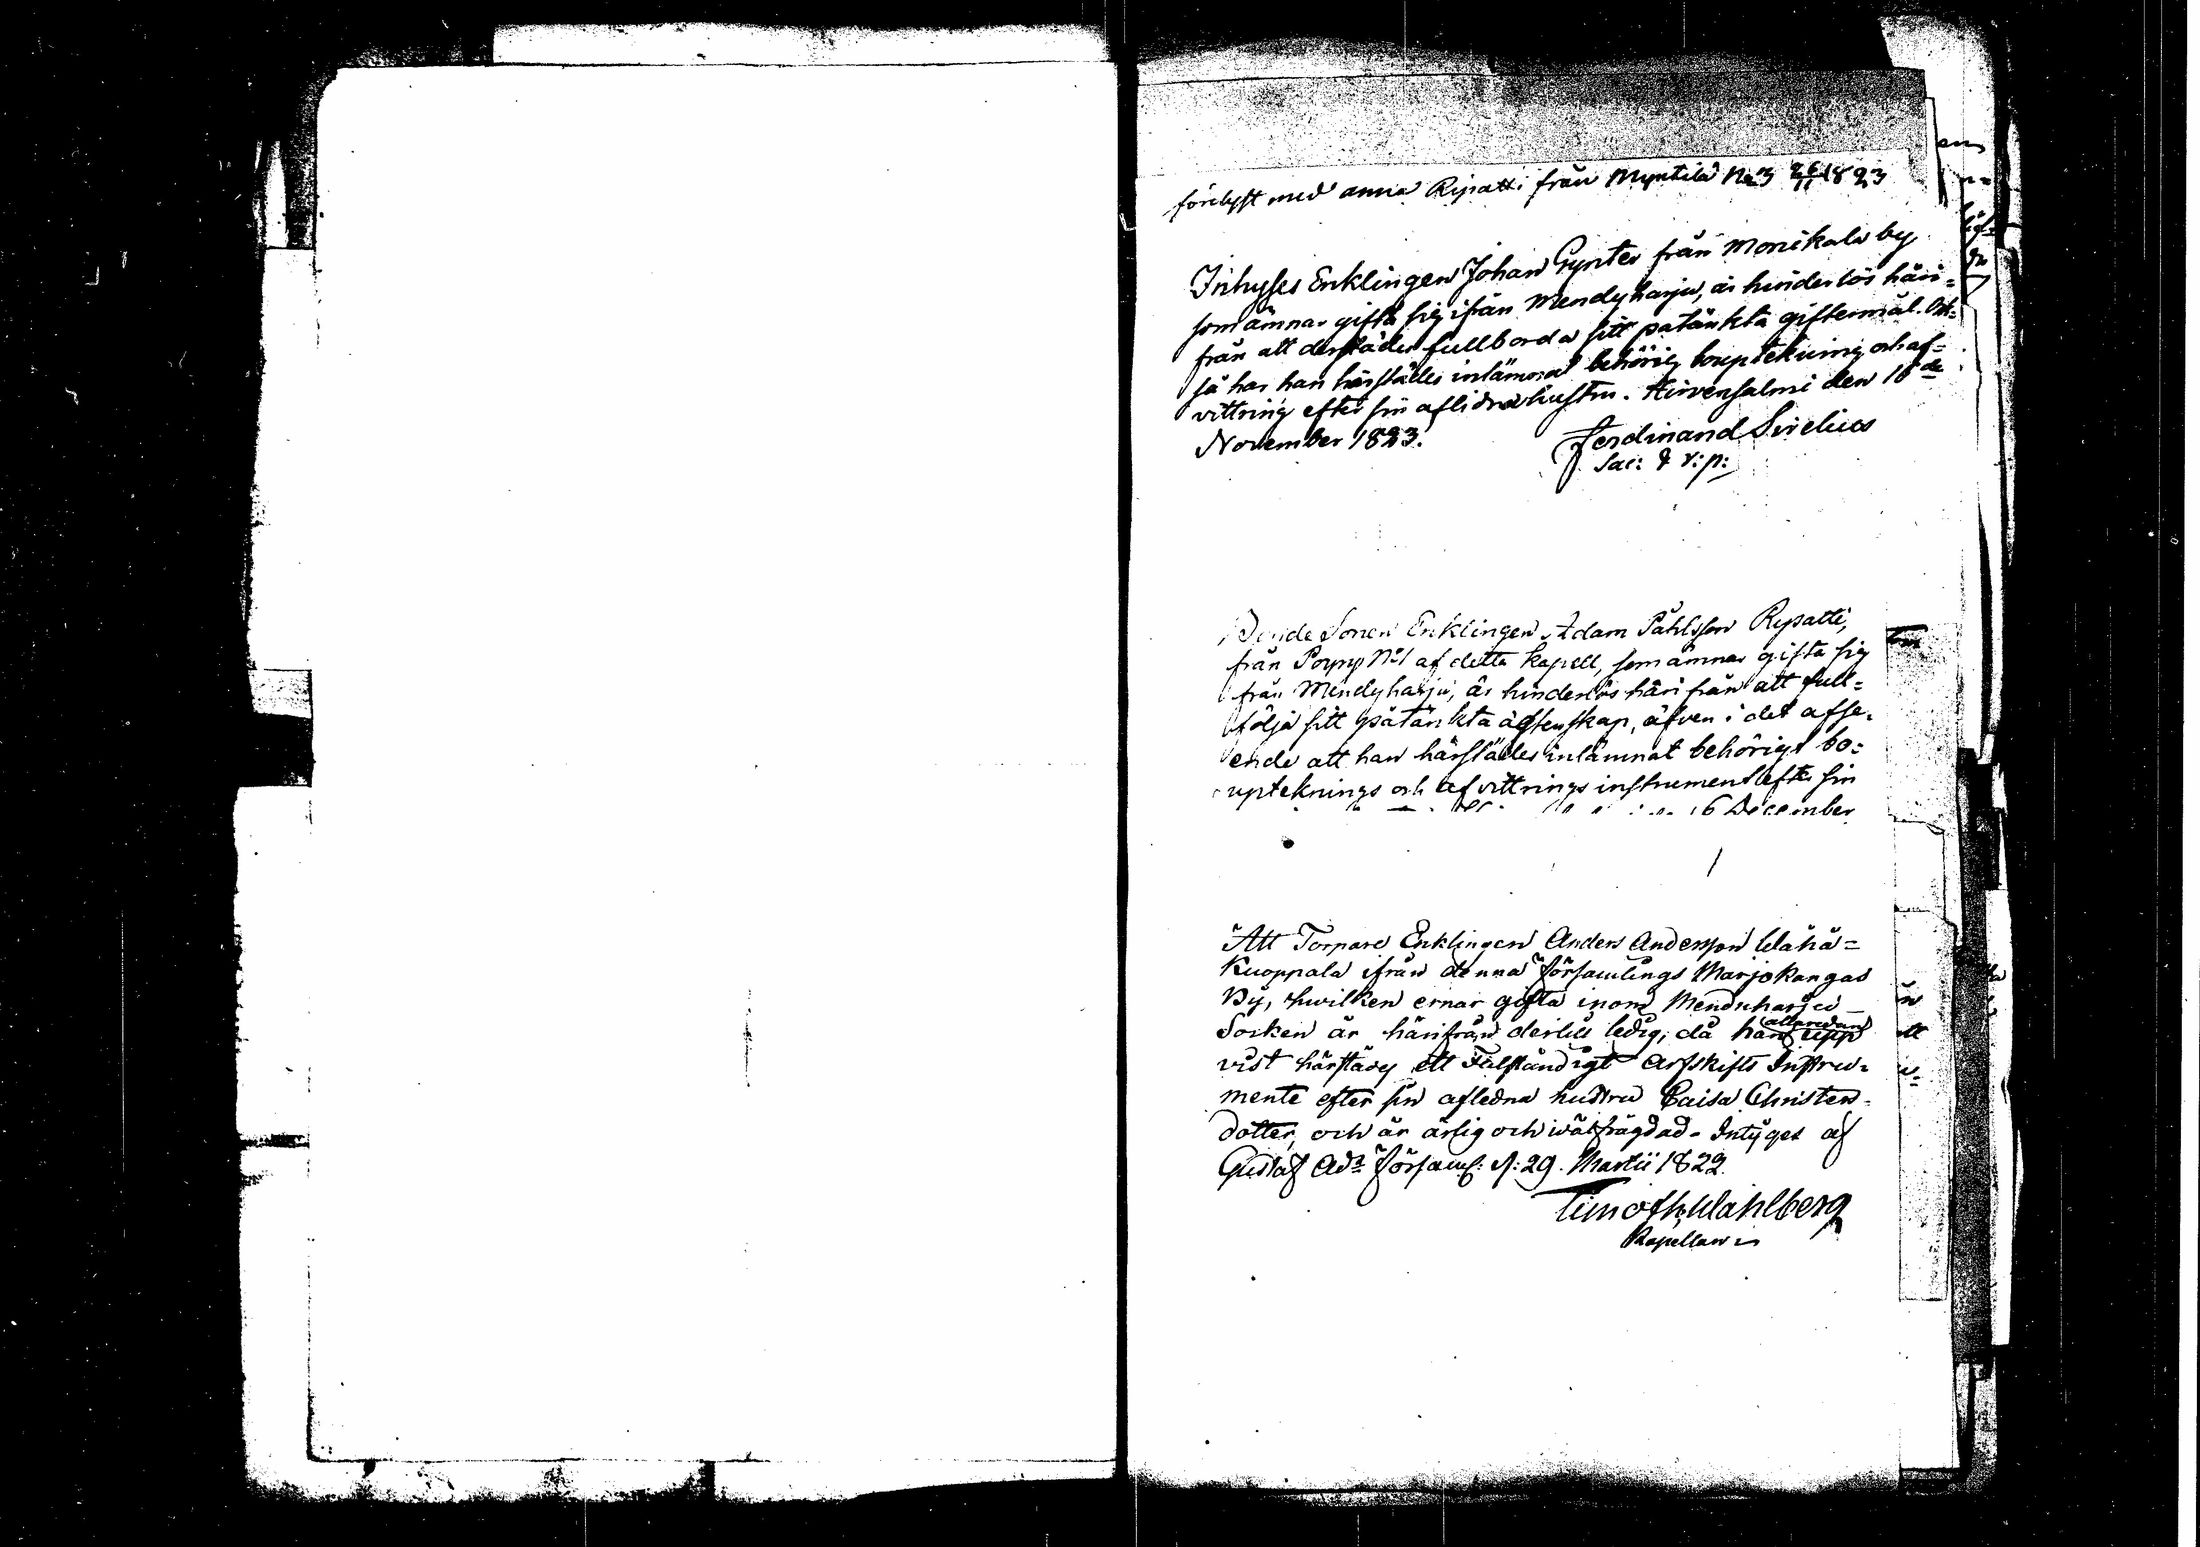 förelyst med anna Ripatti från Myntilä No 3 26/11 1823
Inhyses Enklingen Johan Gynter från Monikala by
som ämnar gifta sig ifrån Mendyharju, är hinderlös häri=
från att derstädes fullborda sitt påtänkta giftermål. Ock=
så har han härstädes inlämnat behörig bouptekning och af=
vittring efter sin aflidna hustru. Hirvensalmi den 18de
November 1823.
Ferdinand Sirelius
Sac: & v: p:
Bonde Sonen Enklingen Adam Påhlsson Rypatti,
från Poyry No 1 af detta kapell, som ämnar gifta sig
från Mendyharju, är hinderlös häri från att full=
följa sitt påtänkta ägtenskap, äfven i det afse=
ende att han härstädes inlämnat behörigt bo=
upteknings och afvittrings instrument efter sin
16 December
Att Torpare Enklingen Anders Andersson Wähä=
Kuoppala ifrån denna Församlings Marjokangas
By, hwilken ernar gifta inom Menduharju
Socken är härifrån dertill ledig, då han allaredan upp
vist härstädes ett Fulständigt Arfskifts Instru=
mente efter sin afledna hustru Caisa Christers=
dotter, och är ärlig och wälfrägdad - Intÿget af
Gustaf Ad: Församl: d: 29. Martii 1822.
Timoth: Wahlberg
Kapellan